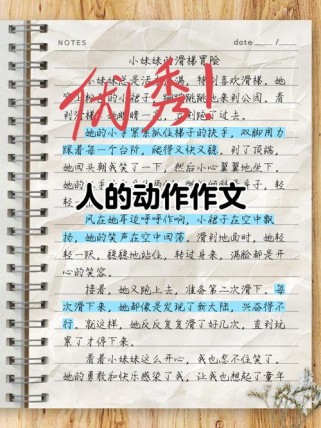 NOTES
date: / /
小妹妹的滑梯冒险
小妹妹总是活力满满,特别喜欢滑梯。她
优秀!
她的小手紧紧抓住梯子的扶手,双脚用力
踩着每一个台阶,爬得又快又稳。到了顶端,
她回头朝我笑了一下,然后小心翼翼地坐下。
人的动作作文
轻轻
风在她耳边呼呼作响,小裙子在空中飘
扬,她的笑声在空中回荡。滑到地面时,她轻
轻一跃,稳稳地站住,转过身来,满脸都是开
心的笑容。
接着,她又跑上去,准备第二次滑下。每
次滑下来,她都像是发现了新大陆,兴奋得不
行。就这样,她反反复复滑了好几次,直到玩
累了才停下来。
看着小妹妹这么开心,我也忍不住笑了。
她的勇敢和快乐感染了我,让我也想起了童年